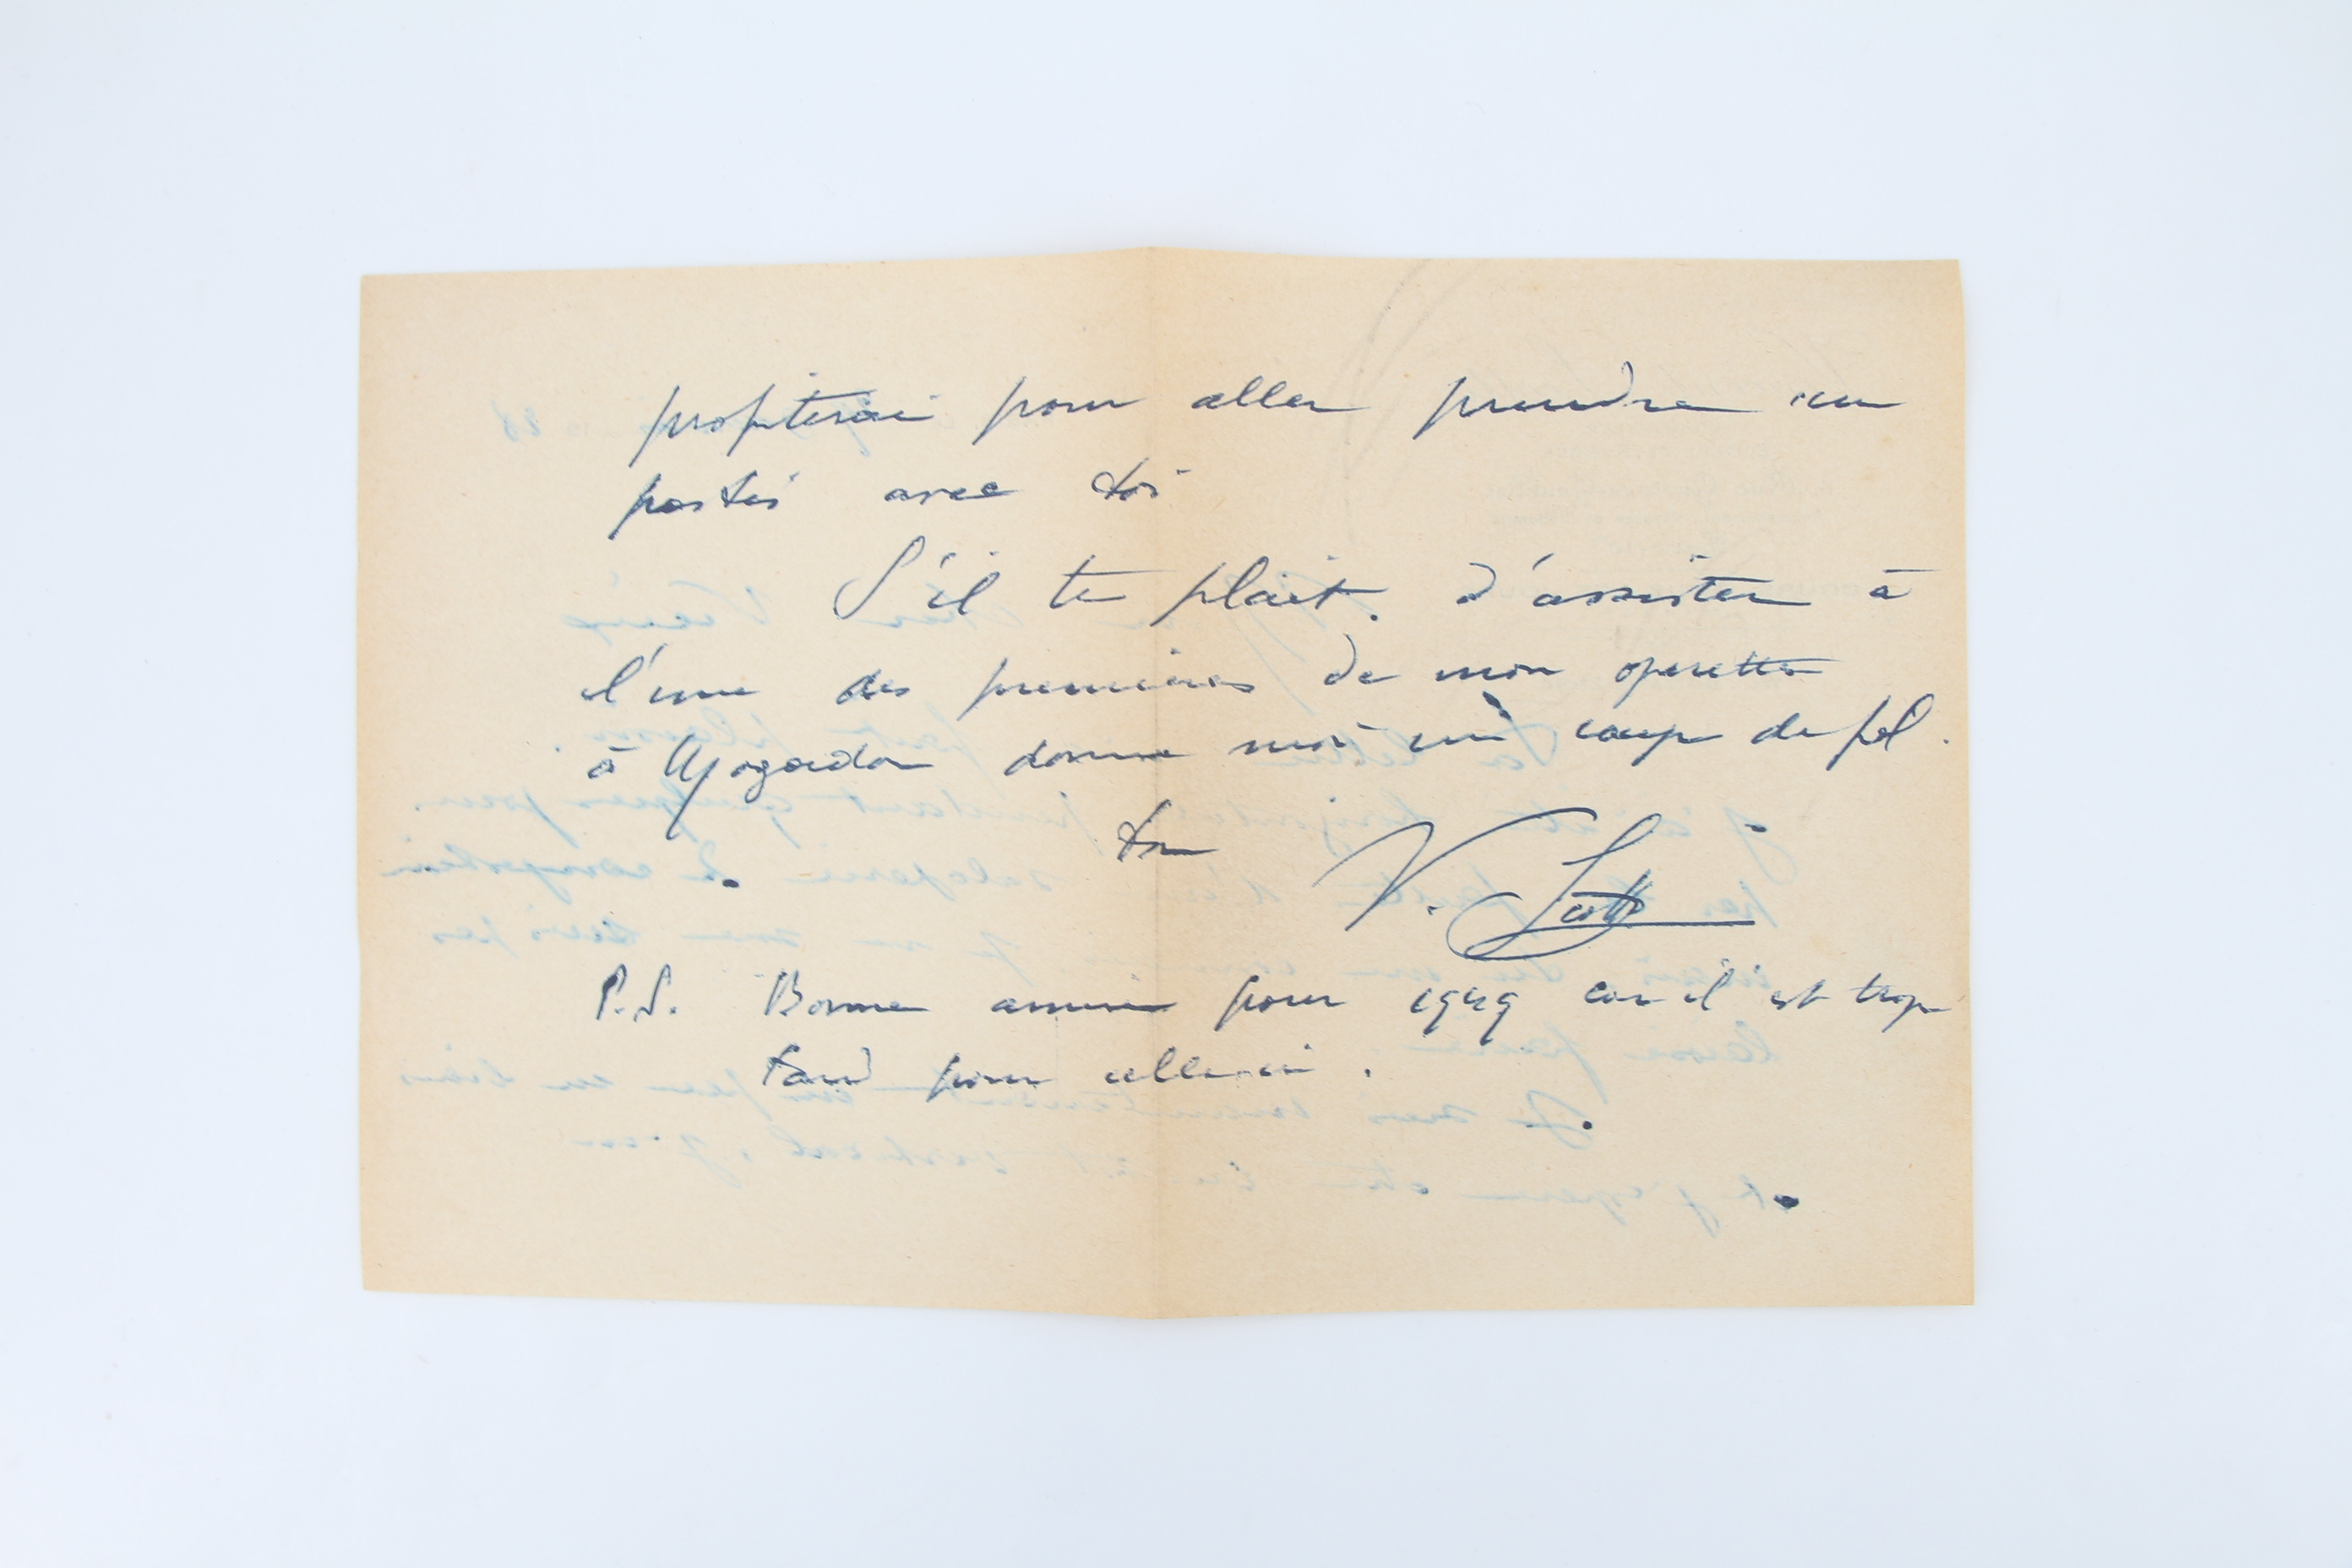 profiterai pour aller prendre un
pastis avec toi
S'il te plait. d'assister à
l'une des premières de mon operette
à Mogador donne moi un coup de fil.
ton V. Scotto
P.S. Bonne année pour 1949 car il est trop
tard pour celle-ci.